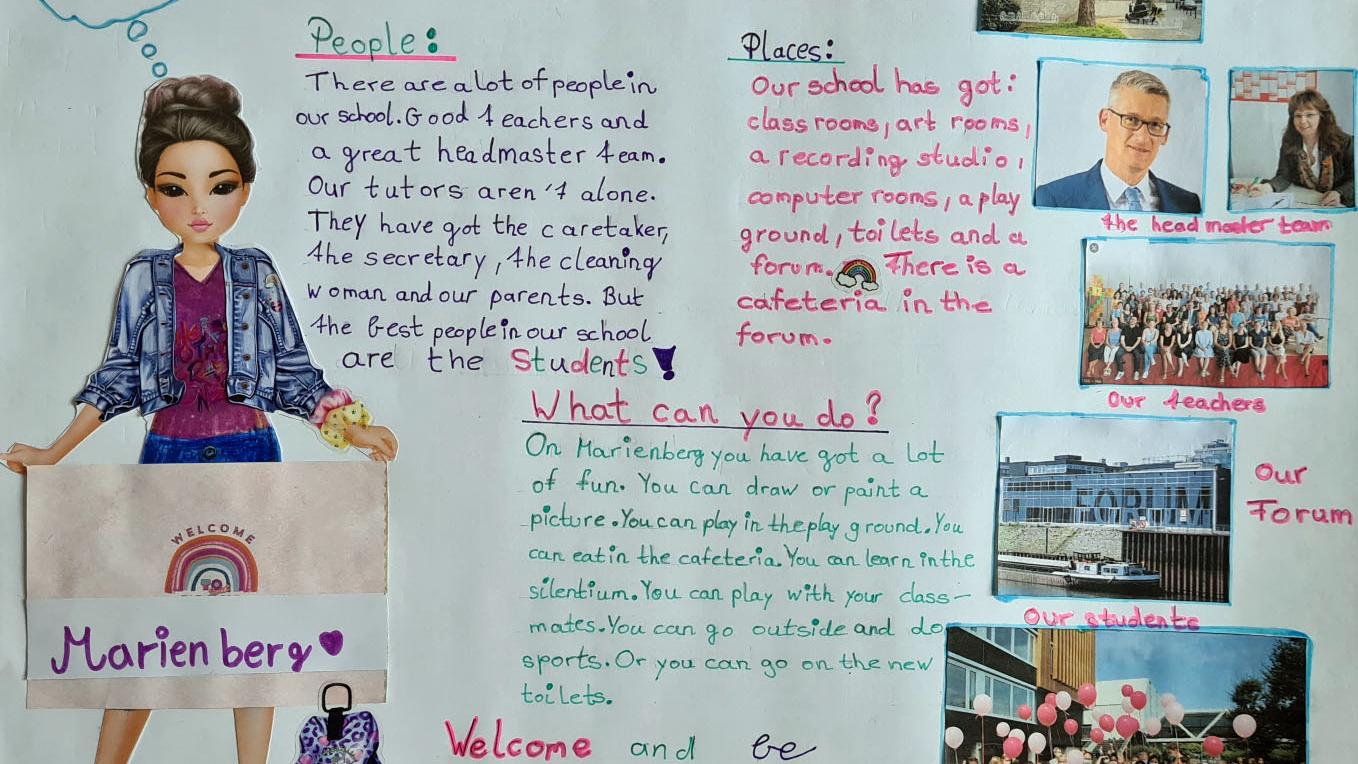 People:
There are a lot of people in
our school. Good teachers and
a great headmaster team.
Our tutors aren't alone.
They have got the caretaker,
the secretary, the cleaning
woman and our parents. But
the best people in our school
are the Students!
Places:
Our school has got:
class rooms, art rooms,
a recording studio,
computer rooms, a play
ground, toilets and a
forum. There is a
cafeteria in the
forum.
What can you do?
On Marienberg you have got a lot
of fun. You can draw or paint a
picture. You can play in the play ground. You
can eat in the cafeteria. You can learn in the
silentium. You can play with your class-
mates. You can go outside and do
sports. Or you can go on the new
toilets.
Welcome and be
WELCOME
TO
Marienberg
the head master team
Our teachers
FORUM
Our
Forum
Our students